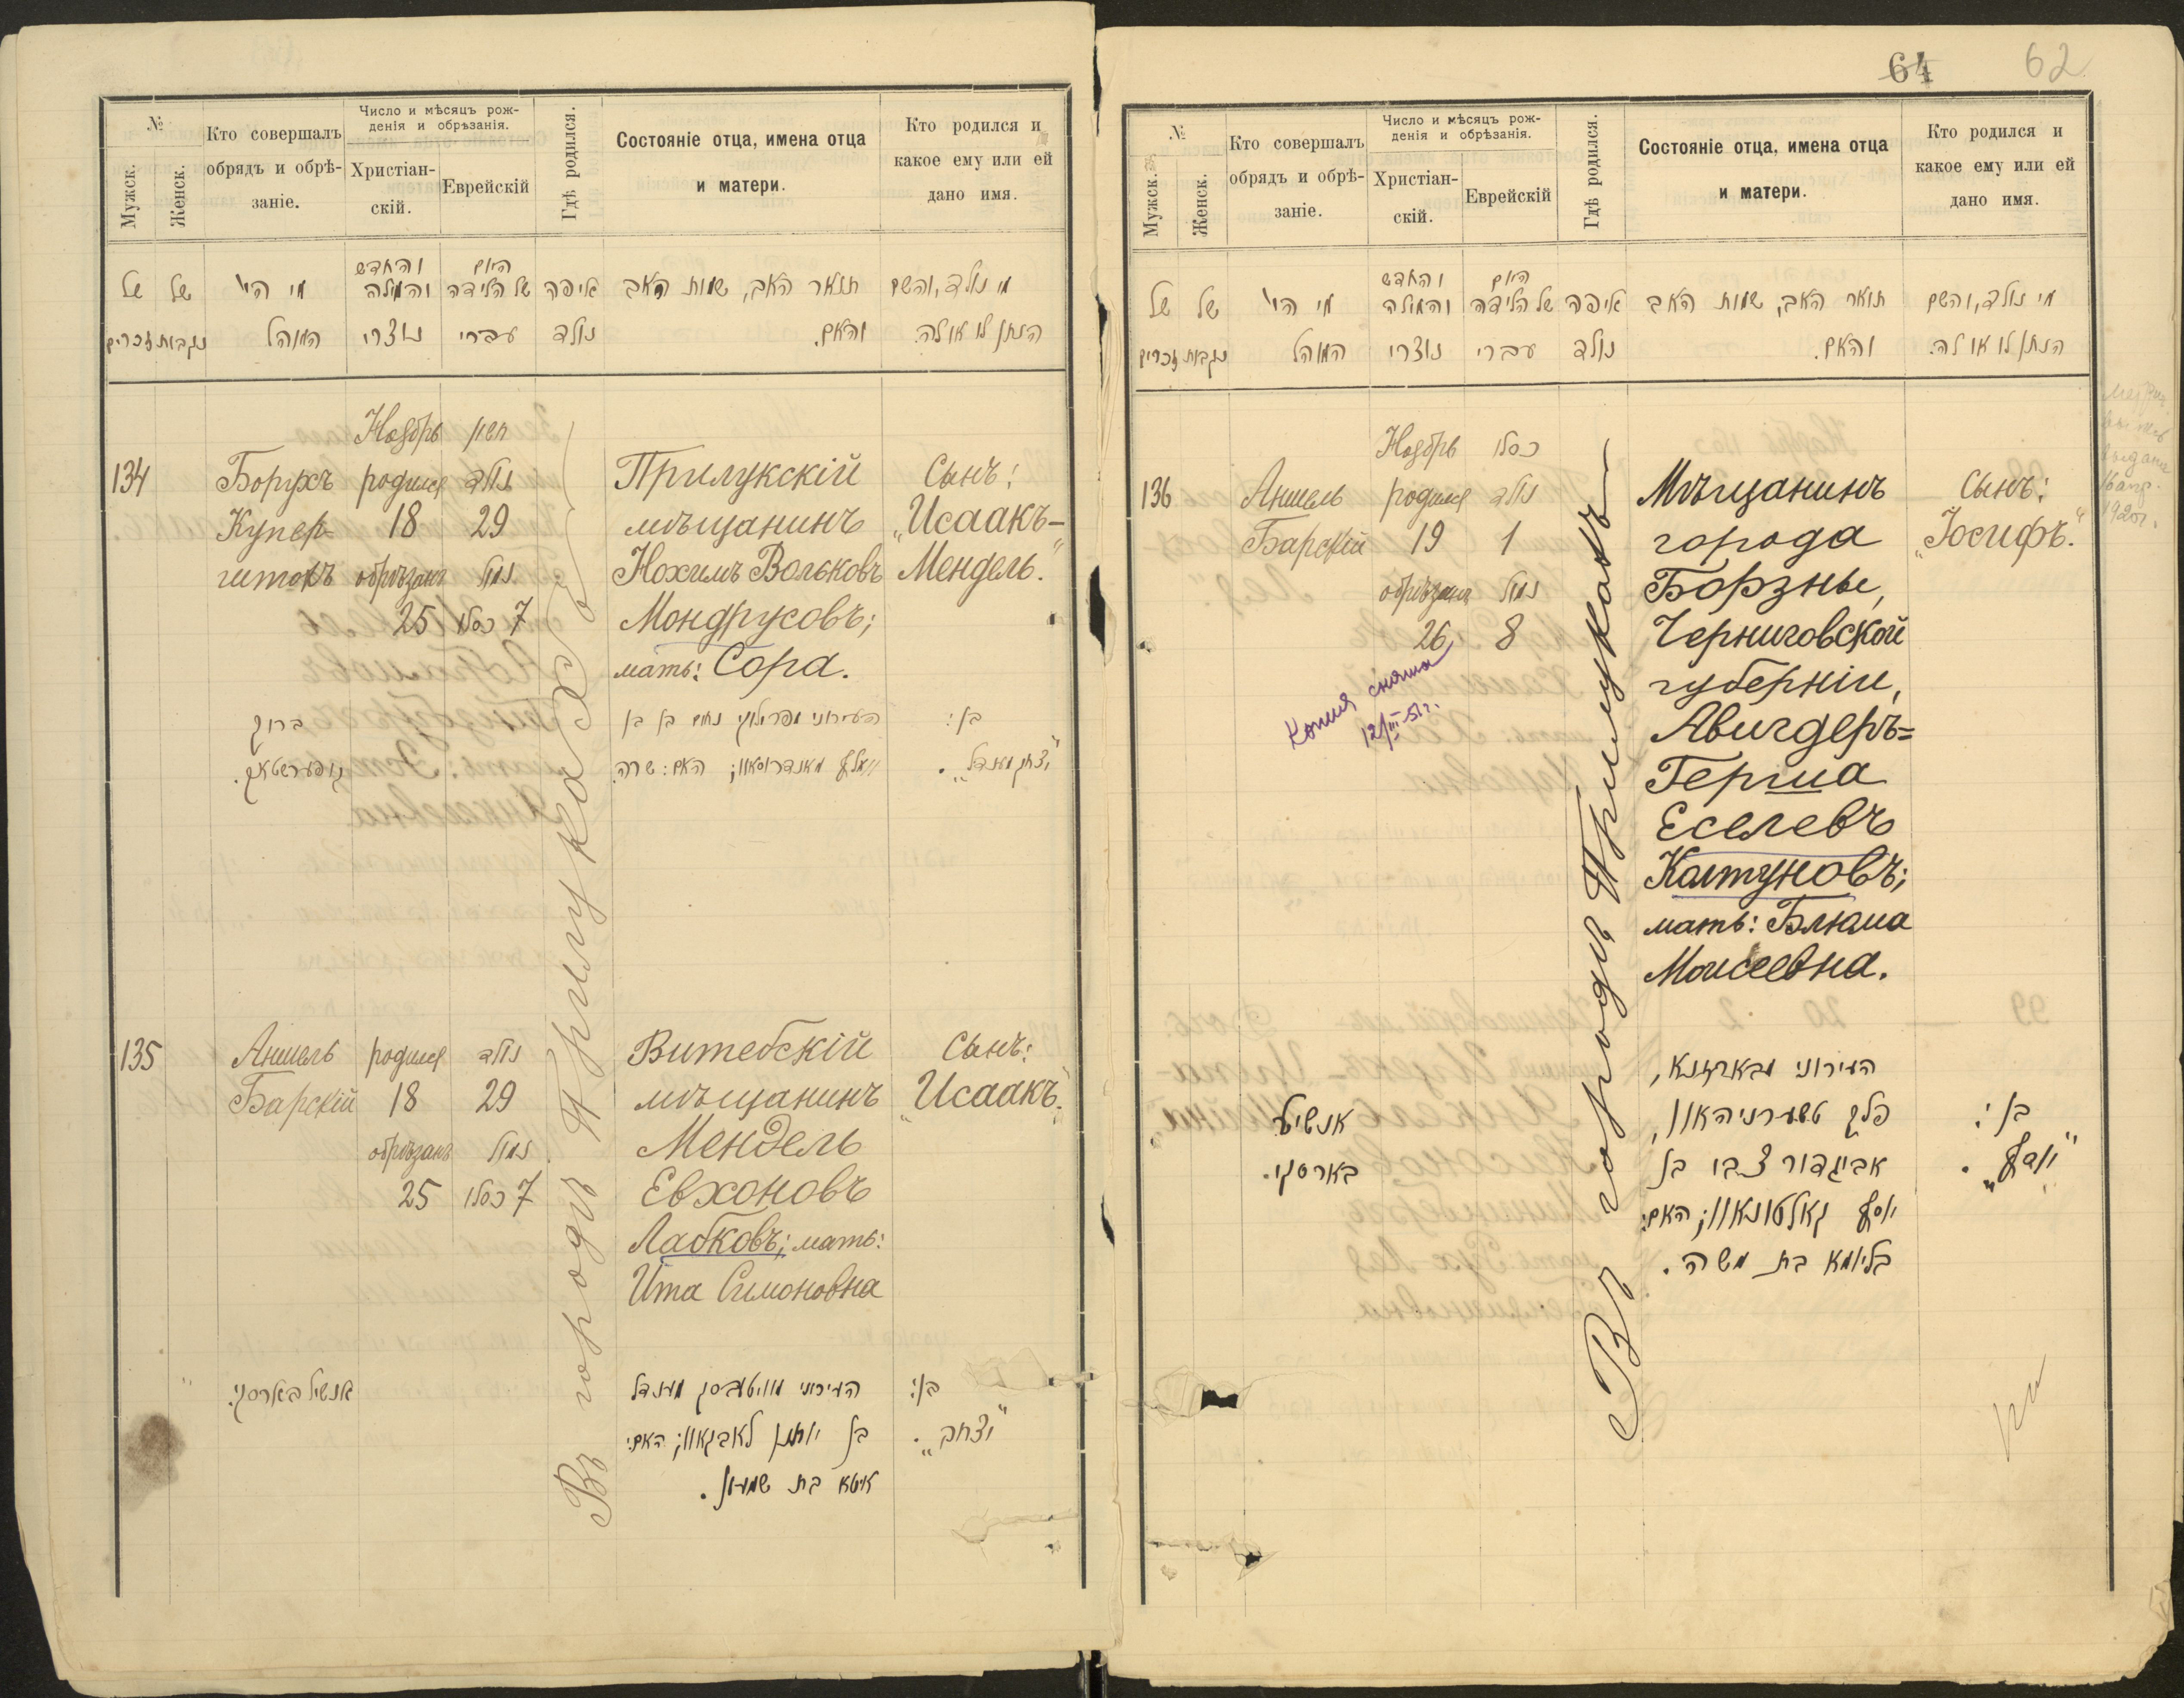 №
Мужск.
Женск.
Кто совершалъ
обрядъ и обрѣ-
заніе.
Число и мѣсяцъ рож-
денія и обрѣзанія.
Христіан-
скій.
Еврейскій
Гдѣ родился.
Состояніе отца, имена отца
и матери.
Кто родился и
какое ему или ей
дано имя.
של זכרים
של נקבות
מי הי' המוהל
היום והחדש
של הלידה והמילה
נוצרי
עברי
איפה נולד
תואר האב, שמות האב
והאם.
מי נולד, והשם
הנתן לו או לה.
Ноябрь
חשון
134
Борухъ
Купер
штокъ
родился נולד
18 29
обрѣзанъ נמול
25 7 כסלו
Прилукскій
мѣщанинъ
Нохимъ Вольковъ
Мондрусовъ;
мать: Сора.
Сынъ:
„Исаакъ-
Мендель.“
ברוך
קופערשטאק.
העירוני מפרילוקי נחום בן
וואלף מאנדרוסאוו; האם: שרה.
בן:
"יצחק מענדל".
135
Аншель
Барскій
родился נולד
18 29
обрѣзанъ נמול
25 7 כסלו
Витебскій
мѣщанинъ
Мендель
Евхоновъ
Лабковъ; мать:
Ита Симоновна
Сынъ:
„Исаакъ.“
אנשיל בארסקי.
העירוני מוויטעבסק מענדל
בן יוחנן לאבקאוו; האם:
איטא בת שמעון.
בן:
"יצחק".
Въ городѣ Прилукахъ
64
62
№
Мужск.
Женск.
Кто совершалъ
обрядъ и обрѣ-
заніе.
Число и мѣсяцъ рож-
денія и обрѣзанія.
Христіан-
скій.
Еврейскій
Гдѣ родился.
Состояніе отца, имена отца
и матери.
Кто родился и
какое ему или ей
дано имя.
של זכרים
של נקבות
מי הי' המוהל
היום והחדש
של הלידה והמילה
נוצרי
עברי
איפה נולד
תואר האב, שמות האב
והאם.
מי נולד, והשם
הנתן לו או לה.
Ноябрь
כסלו
136
Аншель
Барскій
родился נולד
19 1
обрѣзанъ נמול
26 8
Копия снята
12/III-51г.
Мѣщанинъ
города
Борзны,
Черниговской
губерніи,
Авигдеръ=
Герша
Еселевъ
Колтуновъ;
мать: Блюма
Моисеевна.
Сынъ:
„Іосифъ.“
אנשיל
בארסקי.
העירוני מבארזנא,
פלך טשערניהאוו,
אביגדור צבי בן
יוסף קאלטונאוו; האם:
בליומא בת משה.
בן:
"יוסף".
Въ городѣ Прилукахъ
выдана
1920г.